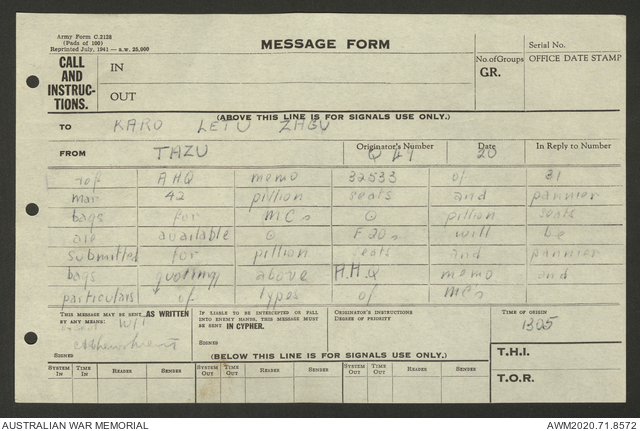 Army Form C.2128
(Pads of 100)
Reprinted July, 1941 — s.w. 25,000
MESSAGE FORM
Serial No.
CALL AND INSTRUC-TIONS.
IN
OUT
No. of Groups
GR.
OFFICE DATE STAMP
(ABOVE THIS LINE IS FOR SIGNALS USE ONLY.)
TO KARO LETU ZAGU
FROM TAZU
Originator's Number Q 47
Date 20
In Reply to Number
ref AHQ memo 32533 of 31
mar 42 pillion seats and pannier
bags for MCs ⊙ pillion seats
are available ⊙ F20s will be
submitted for pillion seats and pannier
bags quoting above A.H.Q memo and
particulars of types of MCs
THIS MESSAGE MAY BE SENT AS WRITTEN BY ANY MEANS. W/T
SIGNED
IF LIABLE TO BE INTERCEPTED OR FALL INTO ENEMY HANDS, THIS MESSAGE MUST BE SENT IN CYPHER.
SIGNED
ORIGINATOR'S INSTRUCTIONS
DEGREE OF PRIORITY
TIME OF ORIGIN
1305
(BELOW THIS LINE IS FOR SIGNALS USE ONLY.)
T.H.I.
T.O.R.
SYSTEM IN TIME IN READER SENDER SYSTEM OUT TIME OUT READER SENDER SYSTEM OUT TIME OUT READER SENDER
AUSTRALIAN WAR MEMORIAL
AWM2020.71.8572